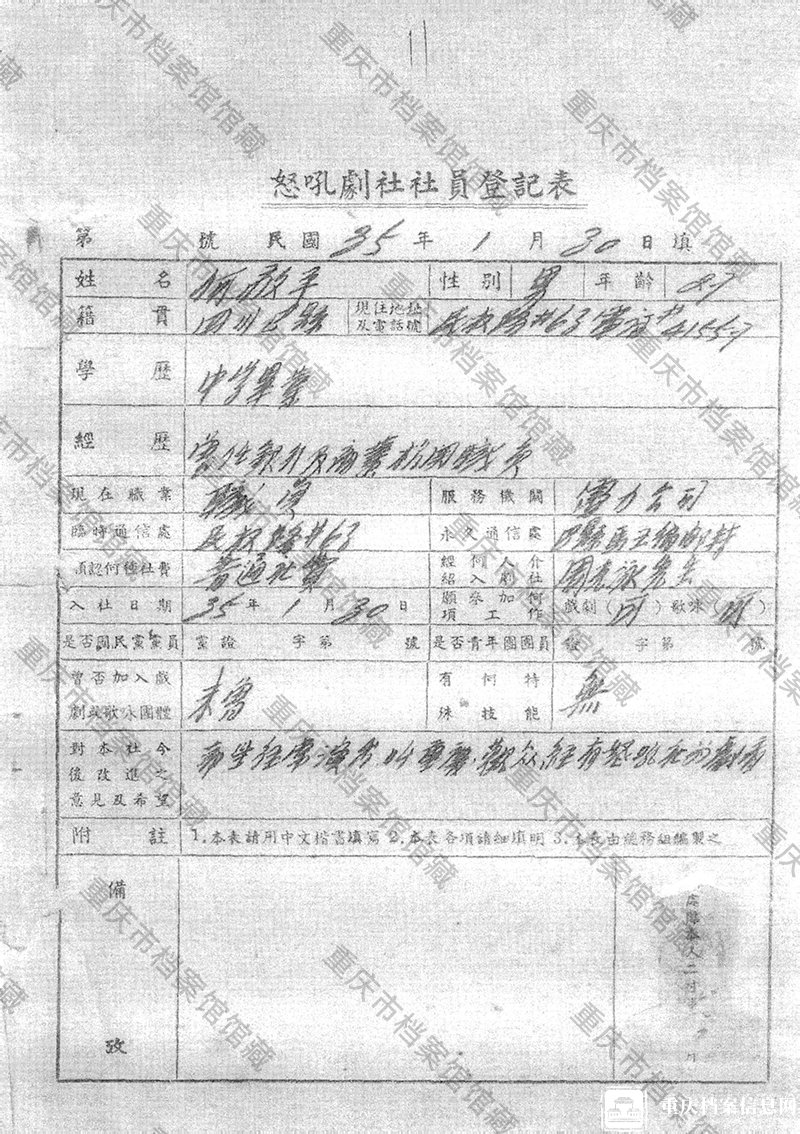 怒吼劇社社員登記表
第 號 民國 35 年 1 月 30 日填
姓名 何敬平 性別 男 年齡
籍貫 四川巴縣 現住地址及電話號 民权路#63
學歷 中学畢業
經歷 曾任銀行及商業机関職員
現在職業 職員 服務機關 電力公司
臨時通信處 民权路#63 永久通信處 巴縣
願認何種社費 普通社費 經何人介紹入劇社
入社日期 35 年 1 月 30 日 願參加何項工作 戲劇(可)歌詠(可)
是否國民黨黨員 黨證 字第 號 是否青年團團員 證 字第 號
曾否加入戲劇與歌詠團體 未曾 有何特殊技能 無
對本社今後改進之意見及希望 希望經常演出
附註 1.本表請用中文楷書填寫 2.本表各項請細填明 3.本表由總務組編製之
備
攷
重庆市档案馆馆藏
重庆档案信息网